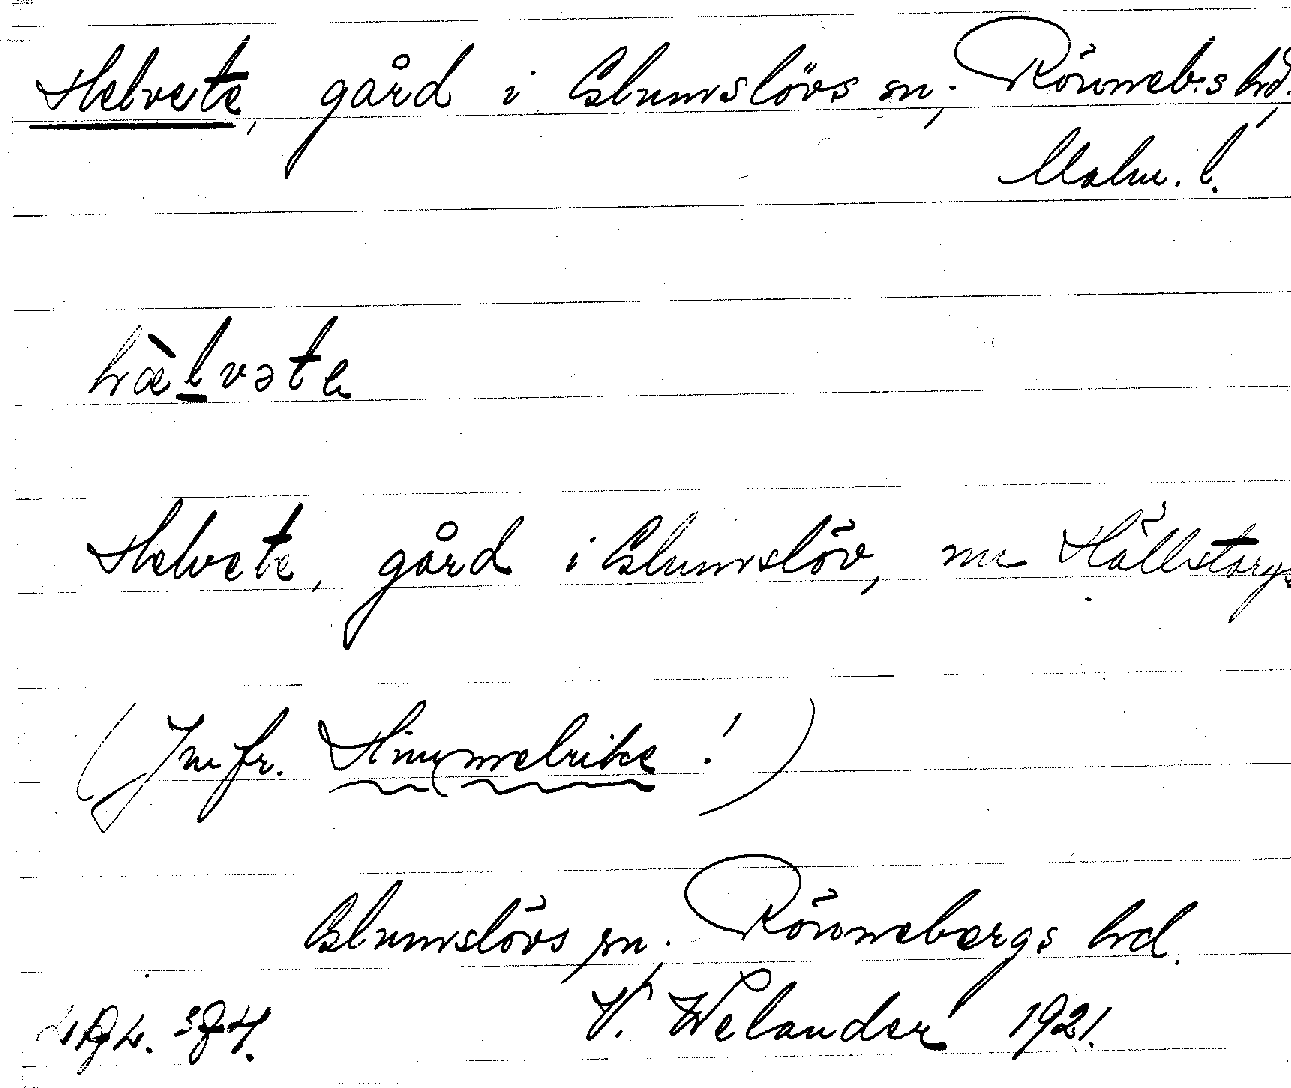 Helvete, gård i Glumslövs sn, Rönneb:s hd,
Malm. l.
hæ̀lvəte
Helvete, gård i Glumslöv, nu Hällstorp
(Jmfr. Himmelrike!)
Glumslövs sn, Rönnebergs hd.
V. Welander 1921.